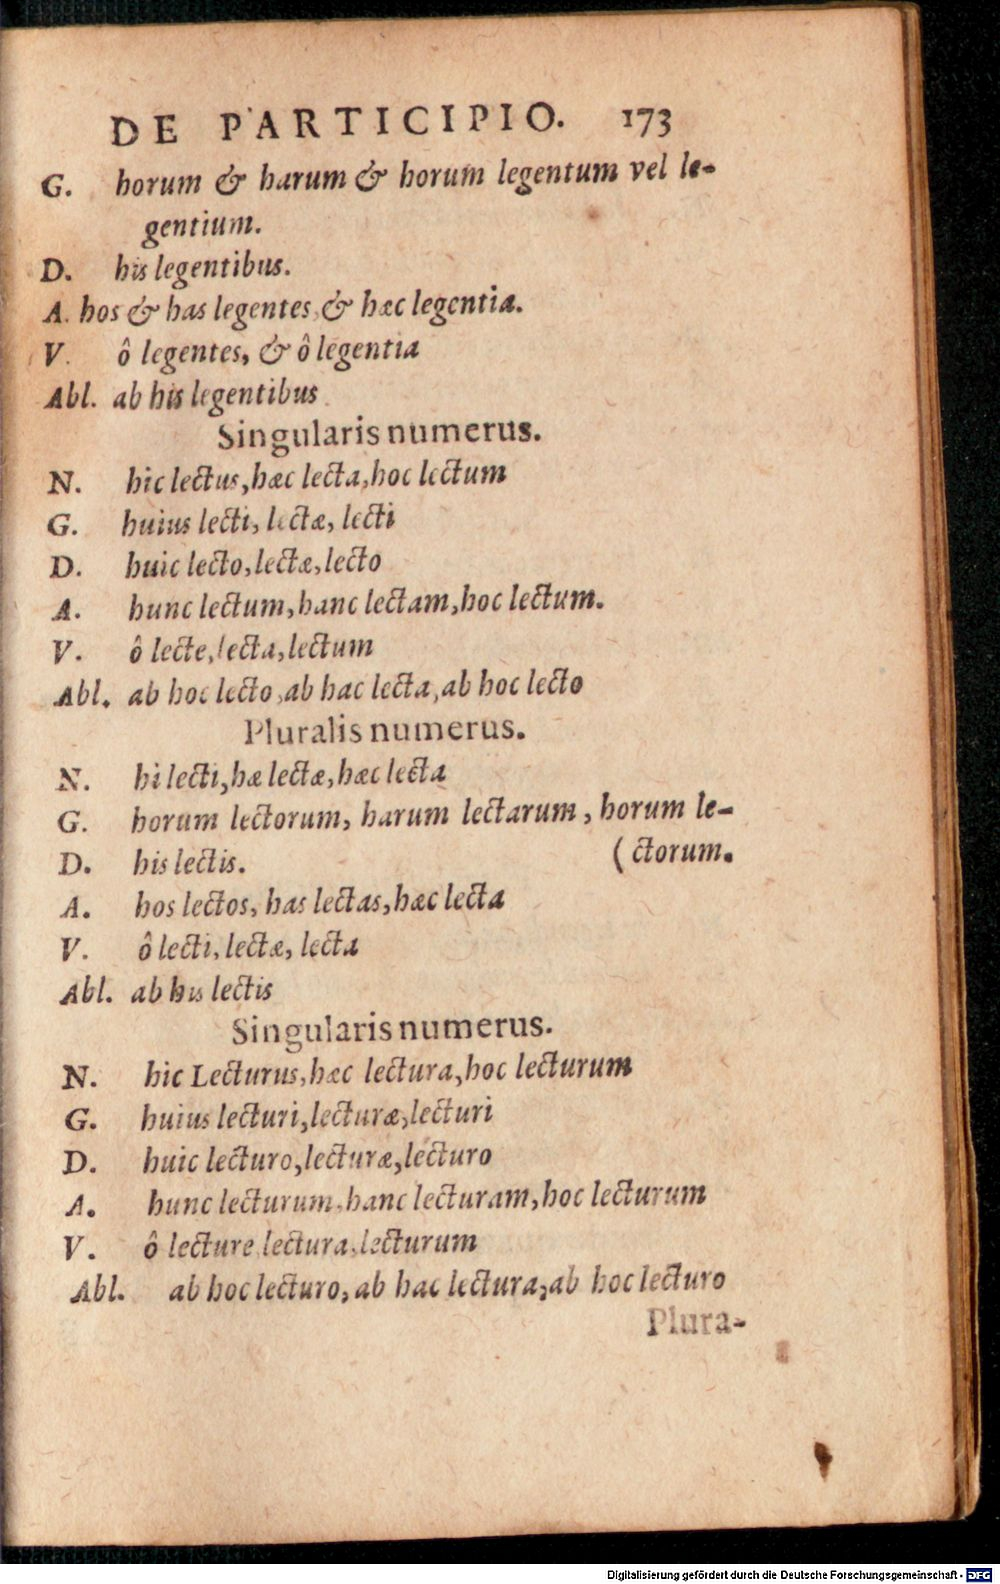 DE PARTICIPIO. 173
G. horum & harum & horum legentum vel le-
gentium.
D. his legentibus.
A. hos & has legentes, & hæc legentia.
V. ô legentes, & ô legentia
Abl. ab his legentibus.
Singularis numerus.
N. hic lectus, hæc lecta, hoc lectum
G. huius lecti, lectæ, lecti
D. huic lecto, lectæ, lecto
A. hunc lectum, hanc lectam, hoc lectum.
V. ô lecte, lecta, lectum
Abl. ab hoc lecto, ab hac lecta, ab hoc lecto
Pluralis numerus.
N. hi lecti, hæ lectæ, hæc lecta
G. horum lectorum, harum lectarum, horum le-
D. his lectis. (ctorum.
A. hos lectos, has lectas, hæc lecta
V. ô lecti, lectæ, lecta
Abl. ab his lectis
Singularis numerus.
N. hic Lecturus, hæc lectura, hoc lecturum
G. huius lecturi, lecturæ, lecturi
D. huic lecturo, lecturæ, lecturo
A. hunc lecturum, hanc lecturam, hoc lecturum
V. ô lecture, lectura, lecturum
Abl. ab hoc lecturo, ab hac lectura, ab hoc lecturo
Plura-
Digitalisierung gefördert durch die Deutsche Forschungsgemeinschaft - DFG